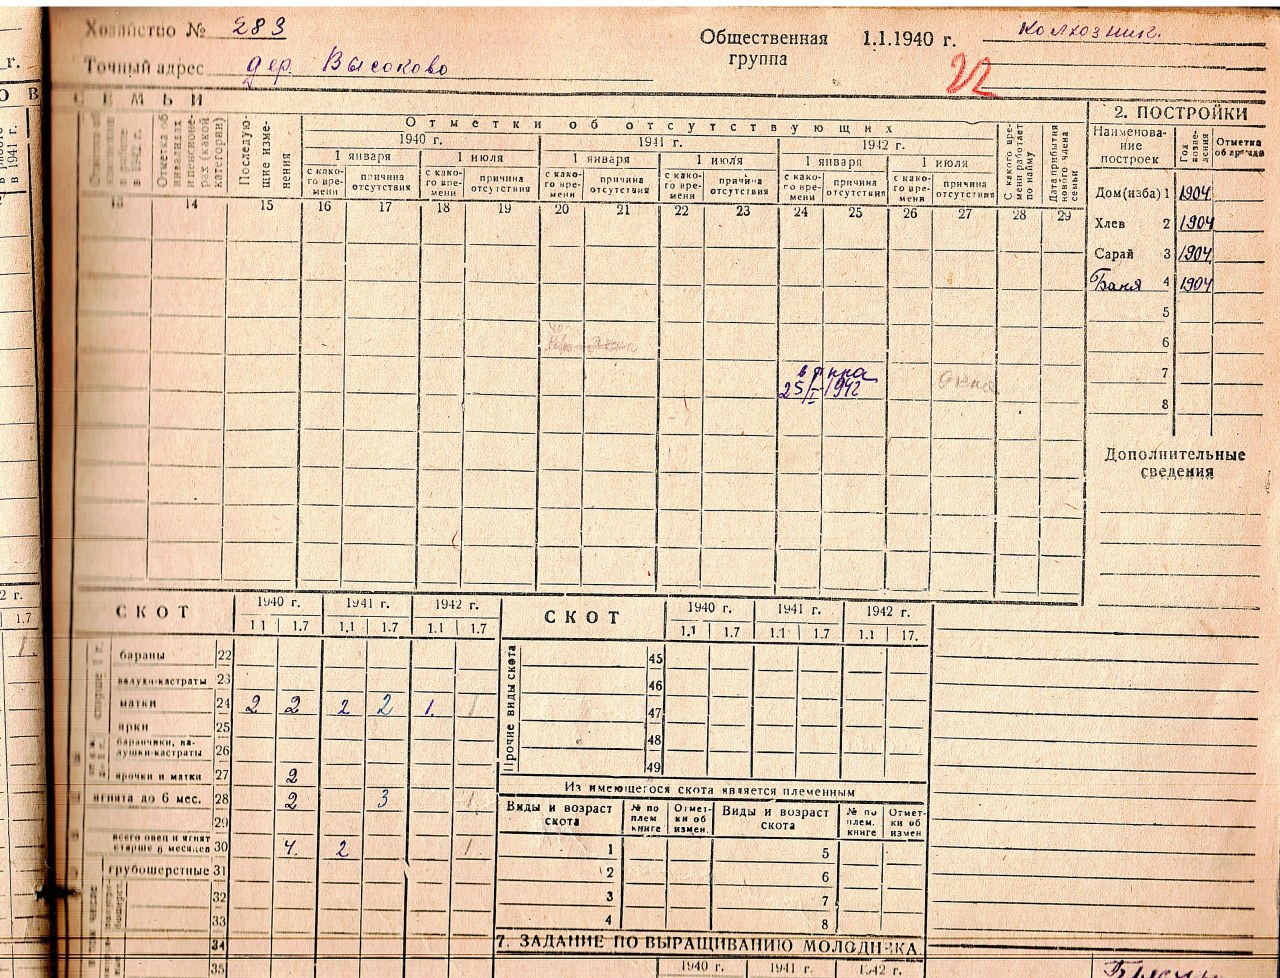 Хозяйство № 283
Точный адрес дер. Высоково
Общественная группа 1.1.1940 г. Колхозник.
22
г.
О В
в 1941 г.
СЕМЬИ
Отметка об инвалидах и пенсионерах (какой категории)
Последующие изменения
Отметки об отсутствующих
1940 г. 1941 г. 1942 г.
1 января 1 июля 1 января 1 июля 1 января 1 июля
с како-го вре-мени причина отсутствия с како-го вре-мени причина отсутствия с како-го вре-мени причина отсутствия с како-го вре-мени причина отсутствия с како-го вре-мени причина отсутствия с како-го вре-мени причина отсутствия
С какого вре-мени работает по найму
Дата прибытия нового члена семьи
13 14 15 16 17 18 19 20 21 22 23 24 25 26 27 28 29
25/I-1942
2. ПОСТРОЙКИ
Наименова-ние построек Год возве-дения Отметка об аренде
Дом(изба) 1 1904
Хлев 2 1904
Сарай 3 1904
Баня 4 1904
5
6
7
8
Дополнительные
сведения
2 г.
1.7
СКОТ 1940 г. 1941 г. 1942 г.
1.1 1.7 1.1 1.7 1.1 1.7
старше 1 г.
бараны 22
валухи-кастраты 23
матки 24 2 2 2 2 1. 1
ярки 25
баранчики, ва-лушки-кастраты 26
ярочки и матки 27 2
ягнята до 6 мес. 28 2 3 1
29
всего овец и ягнят старше 6 месяцев 30 4. 2 1.
грубошерстные 31
32
33
34
35
СКОТ 1940 г. 1941 г. 1942 г.
1.1 1.7 1.1 1.7 1.1 17.
Прочие виды скота
45
46
47
48
49
Из имеющегося скота является племенным
Виды и возраст скота № по плем книге Отмет-ки об измен. Виды и возраст скота № по плем. книге Отмет-ки об измен
1 5
2 6
3 7
4 8
7. ЗАДАНИЕ ПО ВЫРАЩИВАНИЮ МОЛОДНЯКА
1940 г. 1941 г. 1942 г.